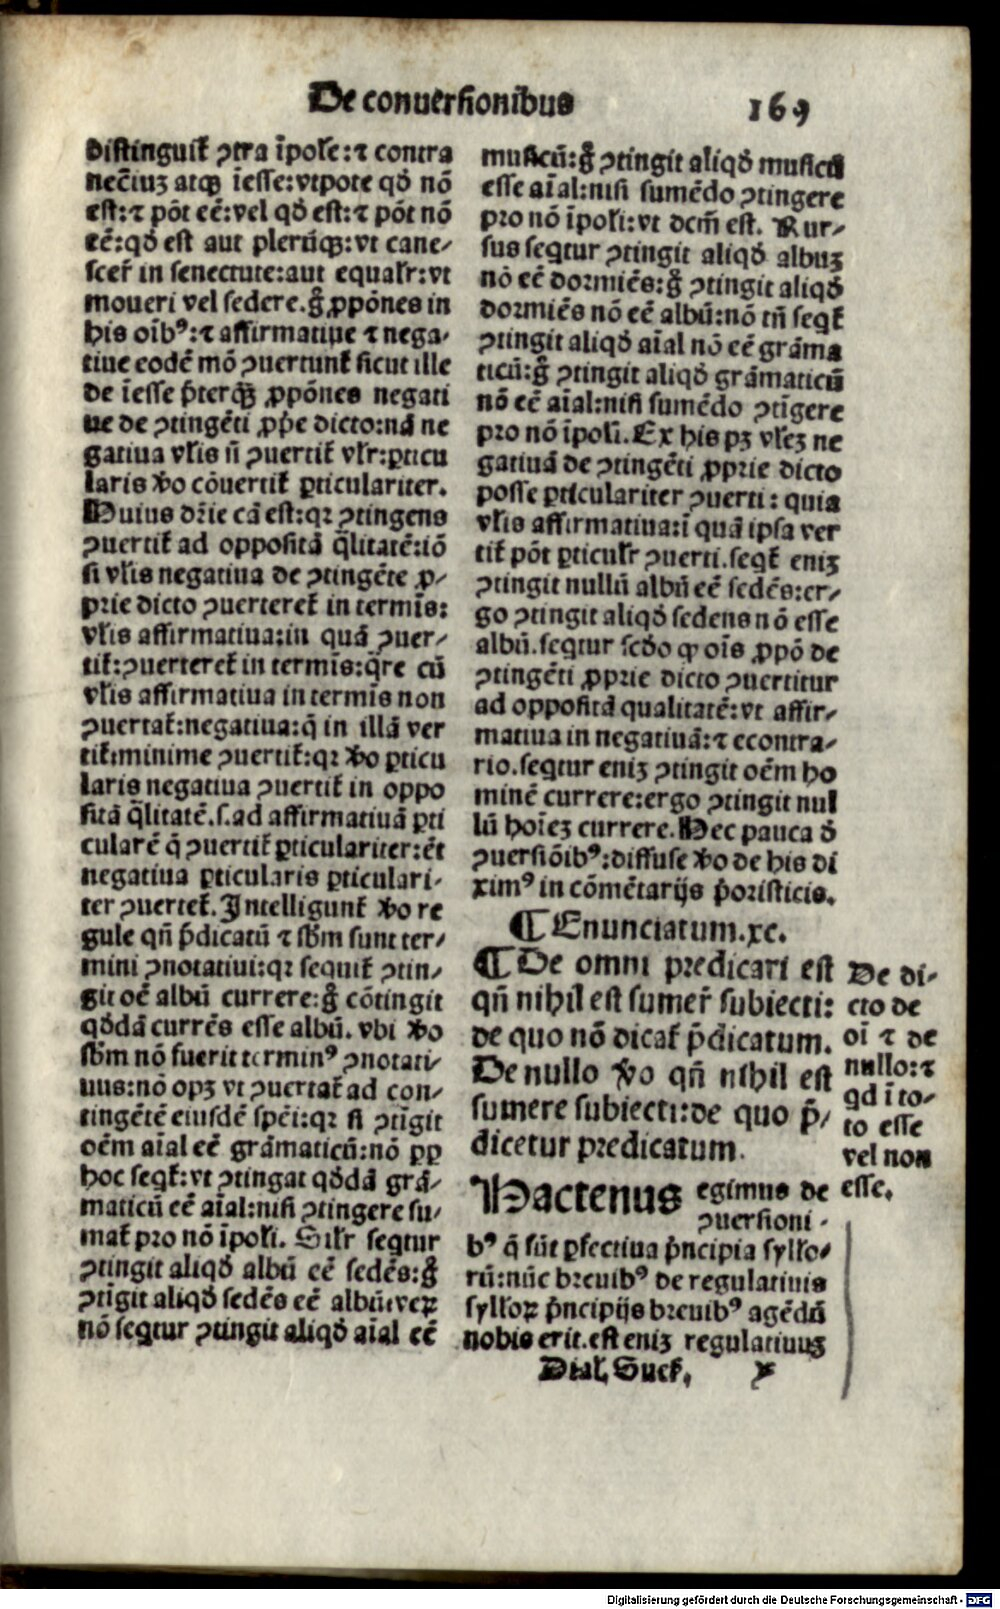 De conuersionibus
169
distinguit̄ ꝯtra īpośe:⁊ contra
nec̄iuꝫ atqꝫ īesse:vtpote qḋ nō
est:⁊ pōt eē:vel qḋ est:⁊ pōt nō
eē:qḋ est aut plerūqꝫ:vt cane⸗
scer̄ in senectute:aut equalr̄:vt
moueri vel sedere.g̊ ꝓpōnes in
his oībꝰ:⁊ affirmatiue ⁊ nega⸗
tiue eodē mō ꝯuertunt̄ sicut ille
de īesse p̄terqꝫ ꝓpōnes negati
ue de ꝯtingēti ꝓp̄e dicto:nā ne
gatiua vl̄is n̄ ꝯuertit̄ vl̄r:ꝑticu
laris ꝟo cōuertit̄ ꝑticulariter.
Huius dr̄ie cā est:qꝛ ꝯtingens
ꝯuertit̄ ad oppositā q̄litatē:iō
si vl̄is negatiua de ꝯtingēte ꝓ⸗
prie dicto ꝯuerteret̄ in termīs:
vl̄is affirmatiua:in quā ꝯuer⸗
tit̄:ꝯuerteret̄ in termīs:q̄re cū
vl̄is affirmatiua in termīs non
ꝯuertat̄:negatiua:q̄ in illā ver
tit̄:minime ꝯuertit̄:qꝛ ꝟo ꝑticu
laris negatiua ꝯuertit̄ in oppo
sitā q̄litatē.s.ad affirmatiuā ꝑti
cularē q̄ ꝯuertit̄ ꝑticulariter:ēt
negatiua ꝑticularis ꝑticulari⸗
ter ꝯuertet̄. Intelligunt̄ ꝟo re
gule qn̄ p̄dicatū ⁊ sb̄m sunt ter⸗
mini ꝯnotatiui:qꝛ sequit̄ ꝯtin⸗
git oē albū currere:g̊ cōtingit
qḋdā currēs esse albū. vbi ꝟo
sb̄m nō fuerit terminꝰ ꝯnotati⸗
uus:nō opꝫ vt ꝯuertat̄ ad con⸗
tingētē eiusdē spēi:qꝛ si ꝯtīgit
oēm aīal eē grāmaticū:nō ꝓp
hoc seqt̄:vt ꝯtingat qḋdā grā⸗
maticū eē aīal:nisi ꝯtingere su⸗
mat̄ pro nō īposi. Silr̄ seqtur
ꝯtingit aliqḋ albū eē sedēs:g̊
ꝯtīgit aliqḋ sedēs eē albū:veꝝ
nō seqtur ꝯtingit aliqḋ aīal eē
musicū:g̊ ꝯtingit aliqḋ musicū
esse aīal:nisi sumēdo ꝯtingere
pro nō īposi:vt dcm̄ est. Rur⸗
sus seqtur ꝯtingit aliqḋ albuꝫ
nō eē dormiēs:g̊ ꝯtingit aliqḋ
dormiēs nō eē albū:nō tn̄ seqt̄
ꝯtingit aliqḋ aīal nō eē grāma
ticū:g̊ ꝯtingit aliqḋ grāmaticū
nō eē aīal:nisi sumēdo ꝯtīgere
pro nō īposi. Ex his pꝫ vl̄eꝫ ne
gatiuā de ꝯtingēti ꝓprie dicto
posse ꝑticulariter ꝯuerti: quia
vl̄is affirmatiua:ī quā ipsa ver
tit̄ pōt ꝑticulr̄ ꝯuerti.seqt̄ eniꝫ
ꝯtingit nullū albū eē sedēs:er⸗
go ꝯtingit aliqḋ sedens nō esse
albū.seqtur scḋo ꝙ oīs ꝓpō de
ꝯtingēti ꝓprie dicto ꝯuertitur
ad oppositā qualitatē:vt affir⸗
matiua in negatiuā:⁊ econtra⸗
rio.seqtur eniꝫ ꝯtingit oēm ho
minē currere:ergo ꝯtingit nul
lū hoīeꝫ currere. Hec pauca ḋ
ꝯuersiōibꝰ:diffuse ꝟo de his di
ximꝰ in cōmētarijs p̄oristicis.
¶ Enunciatum.xc.
¶ De omni predicari est
qn̄ nihil est sumer̄ subiecti:
de quo nō dicat̄ p̄dicatum.
De nullo ꝟo qn̄ nihil est
sumere subiecti:de quo p̄⸗
dicetur predicatum.
De di⸗
cto de
oī ⁊ de
nullo:⁊
qd ī to⸗
to esse
vel non
esse.
Hactenus egimus de
ꝯuersioni⸗
bꝰ q̄ sūt ꝑfectiua p̄ncipia syllo⸗
rū:nūc breuibꝰ de regulatiuis
sylloꝝ p̄ncipijs breuibꝰ agēdū
nobis erit.est eniꝫ regulatiuuꝫ
Dial. Suck. x
Digitalisierung gefördert durch die Deutsche Forschungsgemeinschaft - DFG